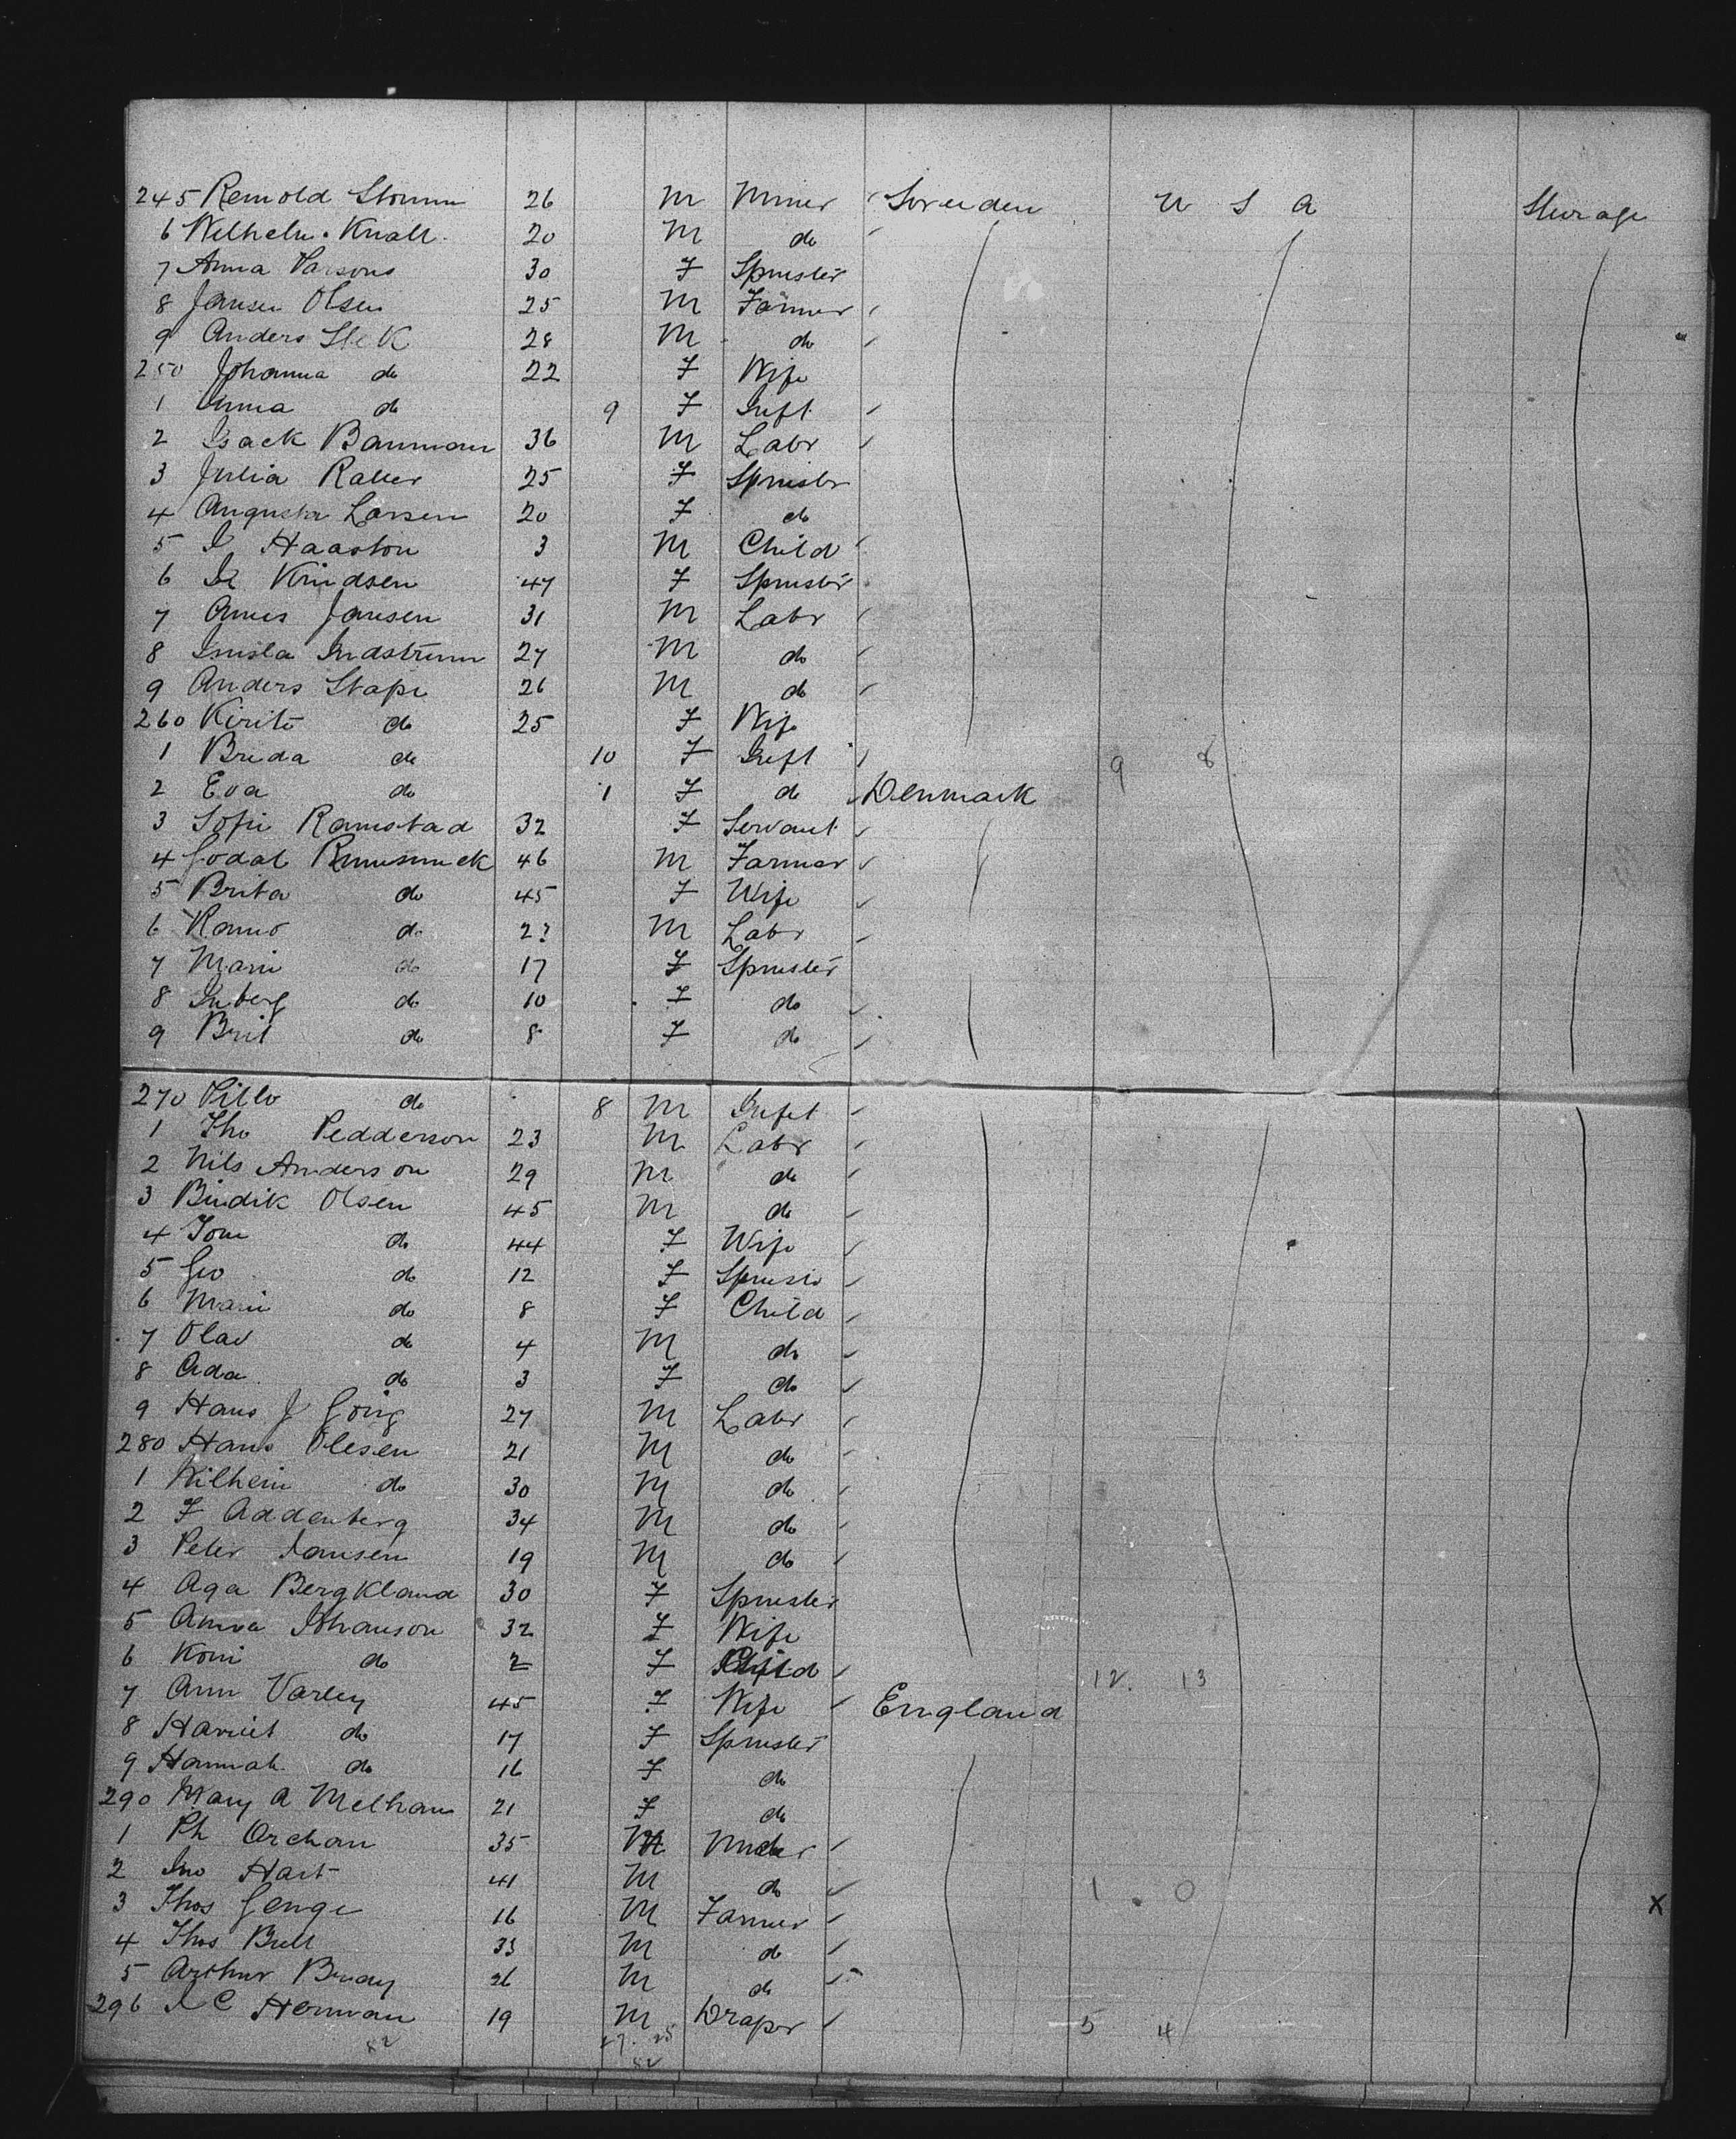 245 Remold Stomm 26 M Miner Sweeden U S A Steerage
6 Wilhelm Knall 20 M do
7 Anna Parsons 30 F Spinster
8 Jansen Olsen 25 M Farmer
9 Anders Slek 28 M do
250 Johanna do 22 F Wife
1 Anna do 9 F Inft
2 Isack Bauman 36 M Labr
3 Julia Raller 25 F Spinster
4 Augusta Larsen 20 F do
5 I Haaston 3 M Child
6 Knudsen 47 F Spinster
7 Ames Jansen 31 M Labr
8 Indstrum 27 M do
9 Anders Stape 26 M do
260 Kirite do 25 F Wife
1 Breda do 10 F Inft 9 8
2 Eva do 1 F do Denmark
3 Sofie Ramstad 32 F Servant
4 Godal 46 M Farmer
5 Brita do 45 F Wife
6 do M Labr
7 Marie do 17 F Spinster
8 Inberg do 10 F do
9 Brit do 8 F do
270 do 8 M Infet
1 Tho Pedderson 23 M Labr
2 Nils Anderson 29 M do
3 Bindik Olsen 45 M do
4 do 44 F Wife
5 Geo do 12 F
6 Marie do 8 F Child
7 Olav do 4 M do
8 Ada do 3 F do
9 Hans J Going 27 M Labr
280 Hans Olesen 21 M do
1 Wilhein do 30 M do
2 F Addenberg 34 M do
3 Peter Jansen 19 M do
4 Aga Bergkland 30 F Spinster
5 Anna Johanson 32 F Wife
6 Koni do 2 F Child 12. 13
7 Ann Varley 45 F Wife England
8 Harriet do 17 F Spinster
9 Hannah do 16 F do
290 Mary A Melham 21 F do
1 Ph Orchan 35 M Miner
2 Jno Hart 41 M do 1 . 0
3 Thos Genge 16 M Farmer X
4 Thos Bull 33 M do
5 Arthur 26 M do
296 I C Herman 19 M Draper 5 4
82 27. 25
82